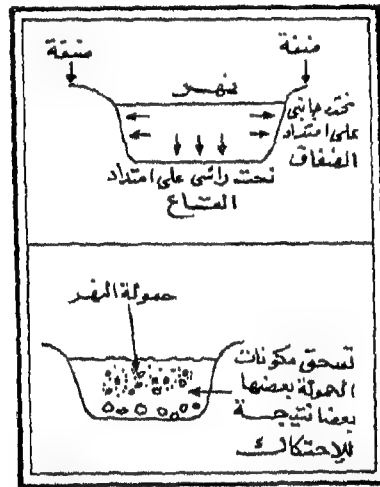 ضفة
ضفة
نهر
نحت جانبى
على امتداد
الضفاف
نحت رأسى على امتداد
القاع
حمولة النهر
تسحق مكونات
الحمولة بعضها
بعضا نتيجة
للإحتكاك